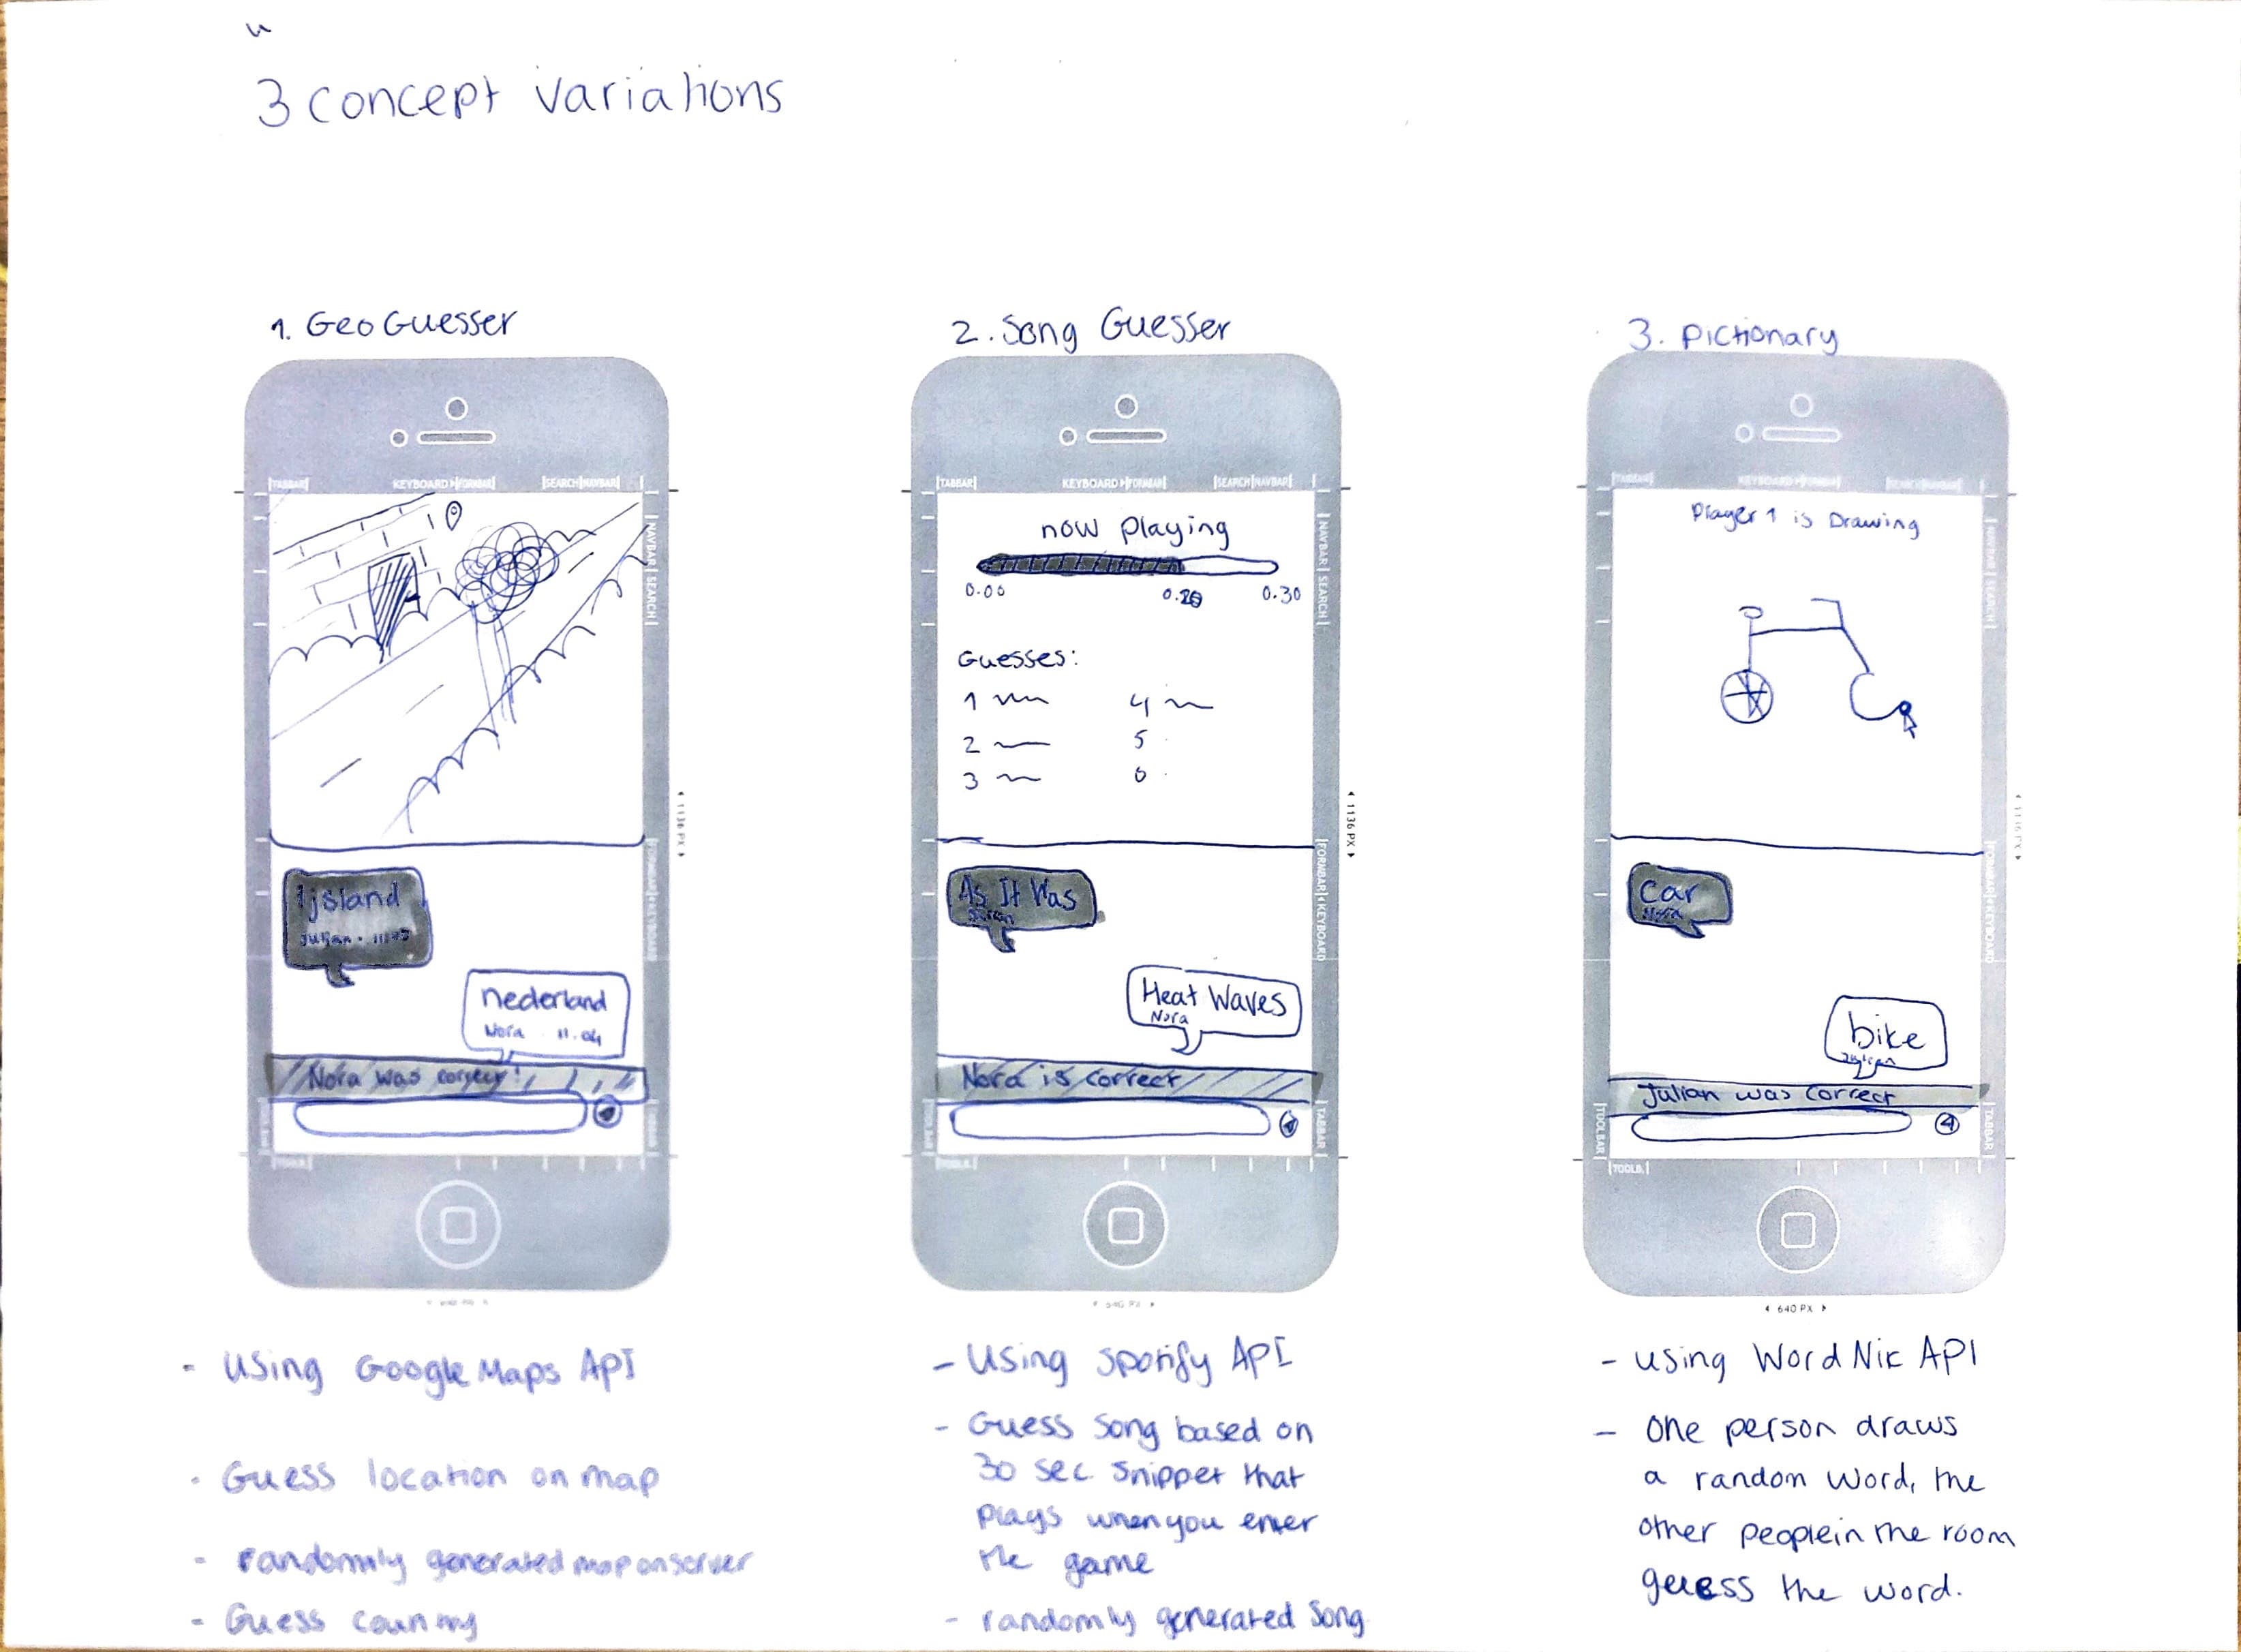 3 concept variations
1. GeoGuesser
TABBAR KEYBOARD FORMBAR SEARCH NAVBAR
NAVBAR SEARCH
1136 PX
FORMBAR KEYBOARD
Ijsland
Julian
nederland
Nora 11.04
Nora was correct!
TOOLS
- Using Google Maps API
- Guess location on map
- randomly generated map on server
- Guess country
2. Song Guesser
TABBAR KEYBOARD FORMBAR SEARCH NAVBAR
NAVBAR SEARCH
now playing
0.00 0.20 0.30
Guesses:
1 4
2 5
3 6
1136 PX
FORMBAR KEYBOARD
As It Was
Heat Waves
Nora
Nora is correct
TABBAR
TOOLS
640 PX
- Using Spotify API
- Guess Song based on
30 sec. snippet that
plays when you enter
the game
- randomly generated Song
3. Pictionary
TABBAR KEYBOARD FORMBAR SEARCH NAVBAR
NAVBAR SEARCH
Player 1 is Drawing
1136 PX
FORMBAR KEYBOARD
Car
Nora
bike
Julian
Julian was correct
TOOLBAR
TABBAR
TOOLS
640 PX
- using WordNik API
- One person draws
a random word, the
other people in the room
guess the word.